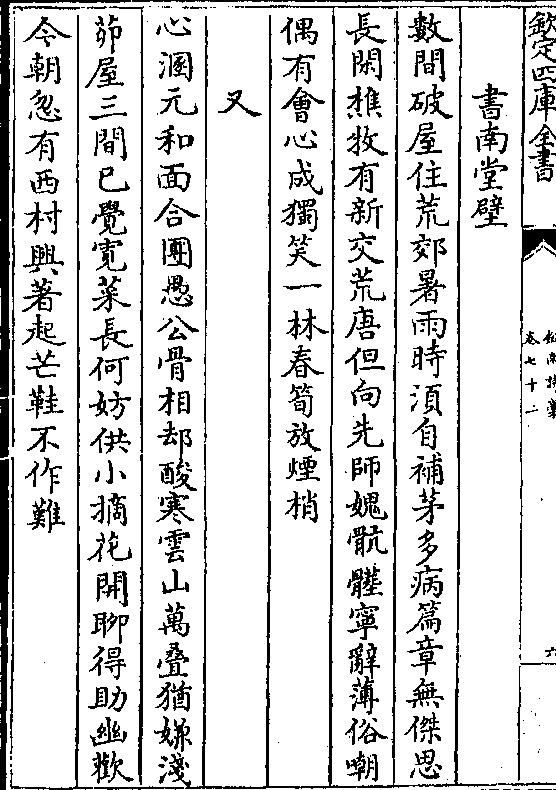 欽定四庫全書
卷七十一
六
書南堂壁
數間破屋住荒郊暑雨時須自補茅多病篇章無傑思
長閑樵牧有新交荒唐但向先師媿骯髒寧辭薄俗嘲
偶有會心成獨笑一林春筍放煙梢
又
心溷元和面合團愚公骨相却酸寒雲山萬疊猶嫌淺
茆屋三間已覺寛菜長何妨供小摘花開聊得助幽歡
今朝忽有西村興著起芒鞋不作難